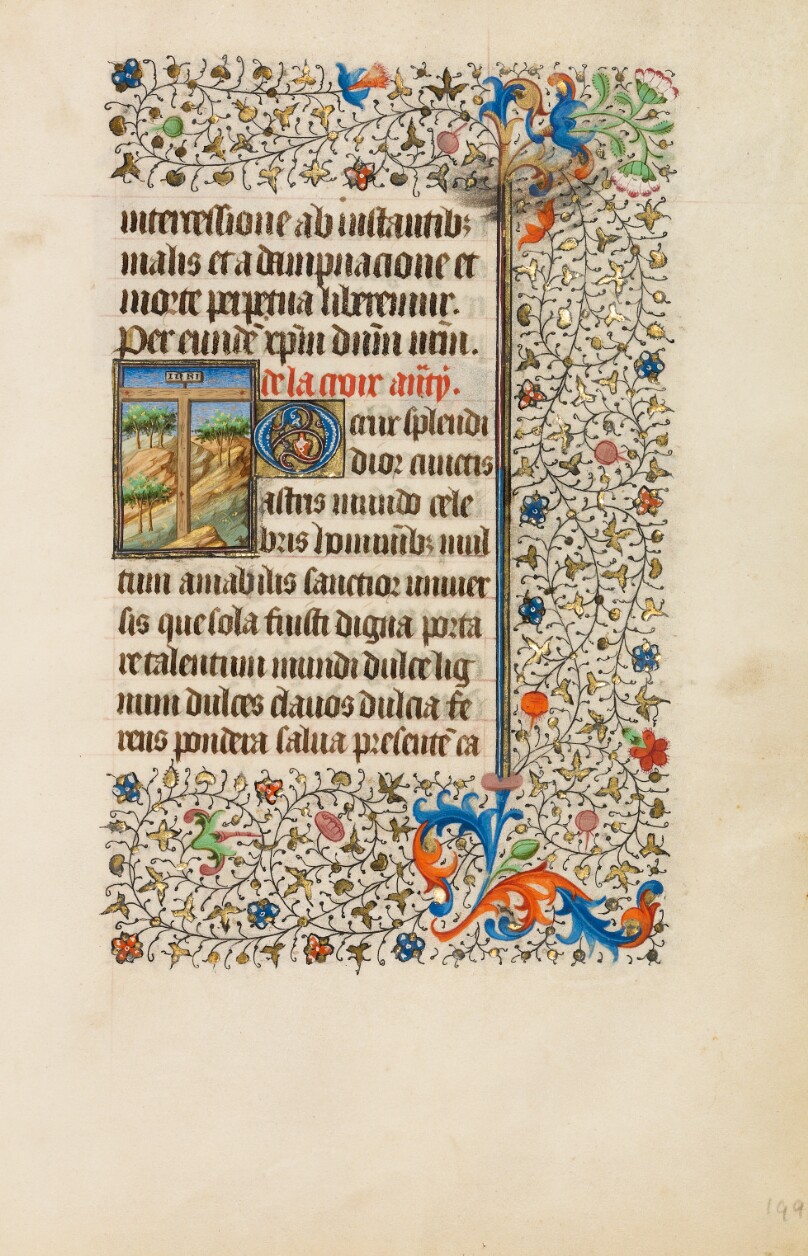 intercessione ab instantib;
malis et a dampnacione et
morte perpetua liberemur.
Per eundē xp̄m dn̄m nr̄m.
INRI
de la croix
O crux splendi
dior cunctis
astris mundo cele
bris hominib; mul
tum amabilis sanctior univer
sis que sola fuisti digna porta
re talentum mundi dulce lig
num dulces clavos dulcia fe
rens pondera salva presentē ca
199